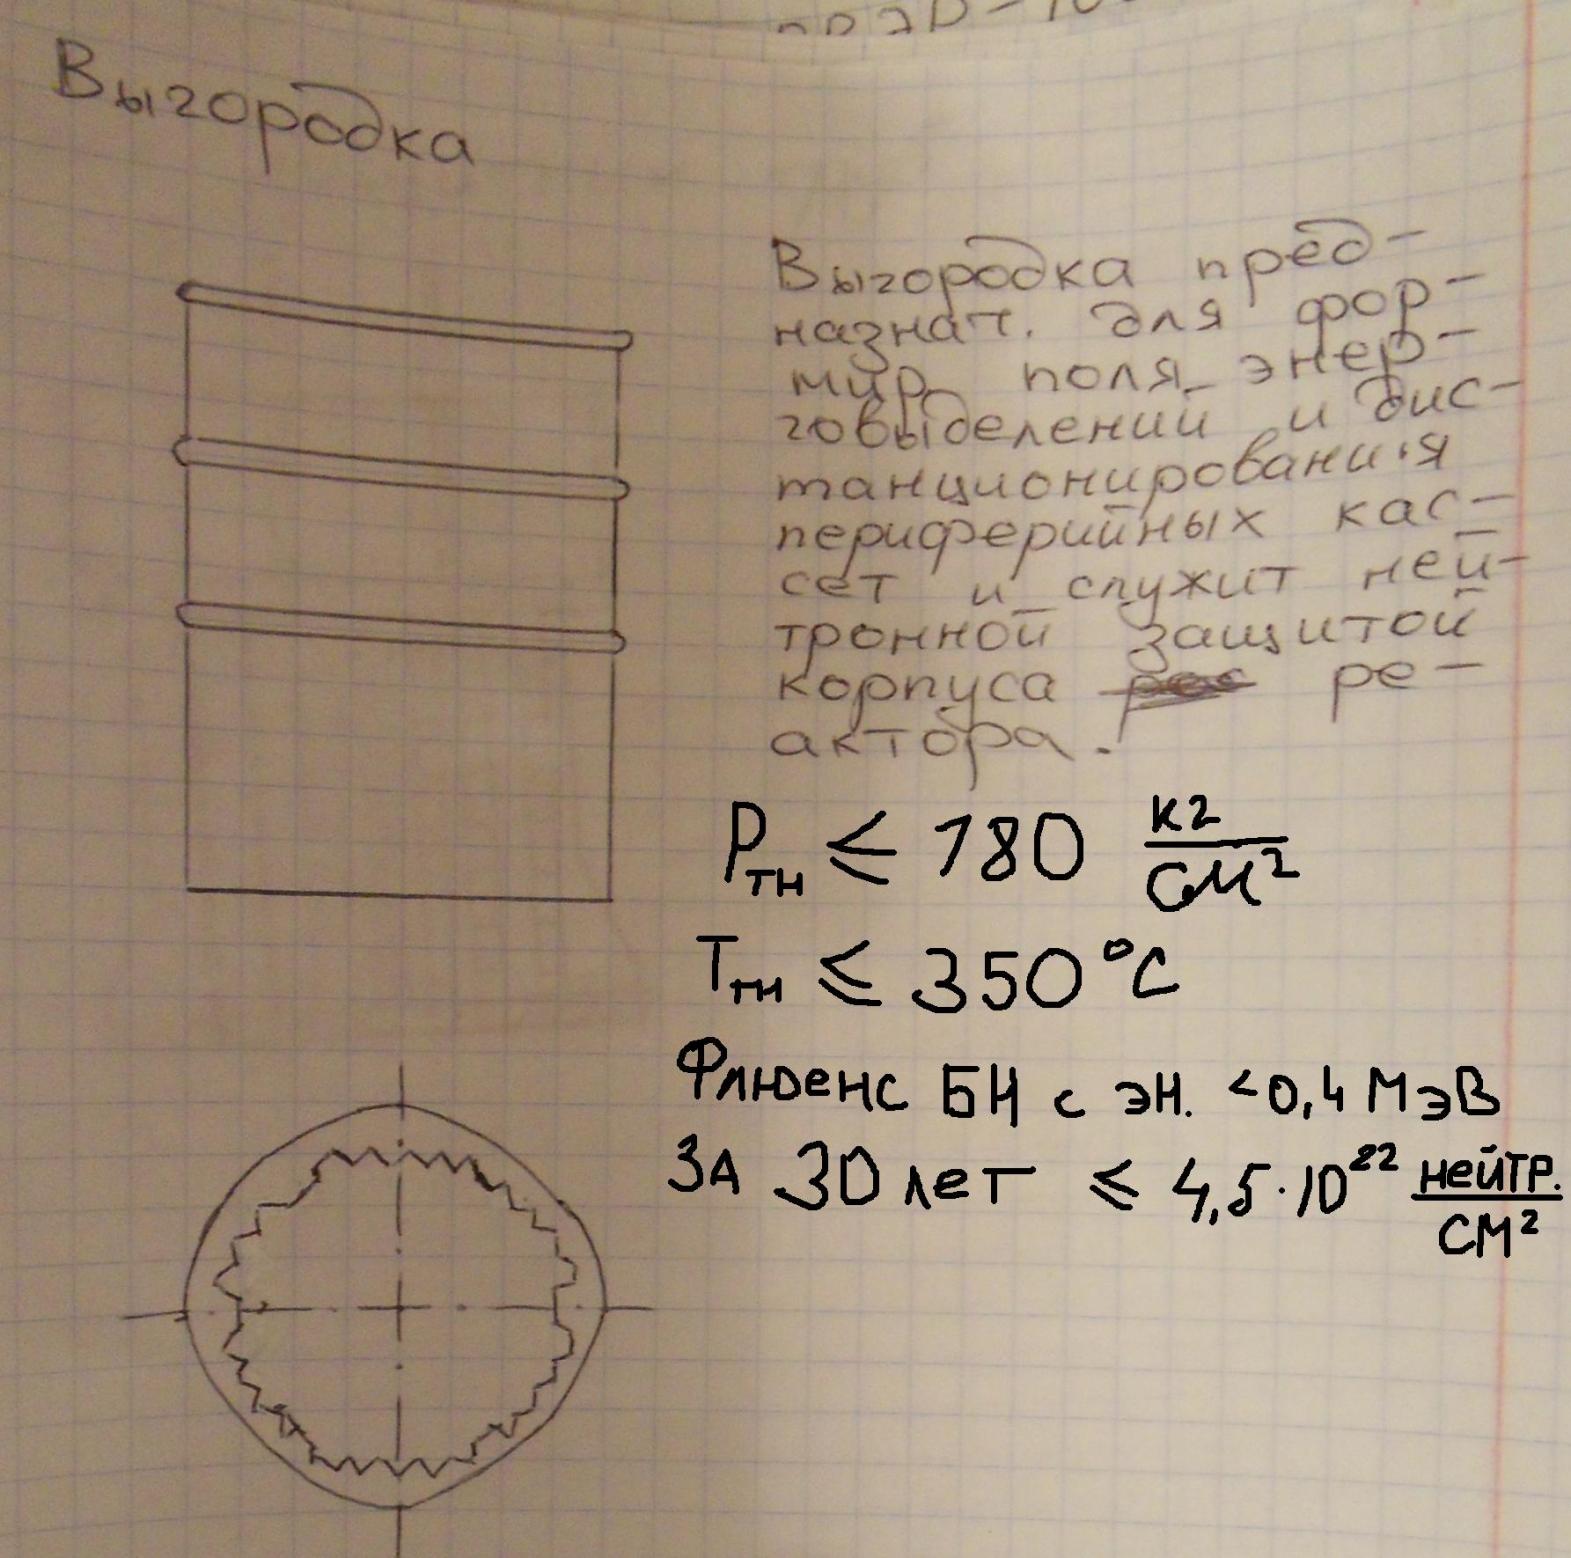 Выгородка
Выгородка пред-
назнач. для фор-
мир. поля энер-
говыделений и дис-
танционирования
периферийных кас-
сет и служит ней-
тронной защитой
корпуса ре-
актора.
Pтн ≤ 180 кг/см²
Tтн ≤ 350 °C
Флюенс БН с эн. <0,4 МэВ
ЗА 30 лет ≤ 4,5·10²² нейтр./см²